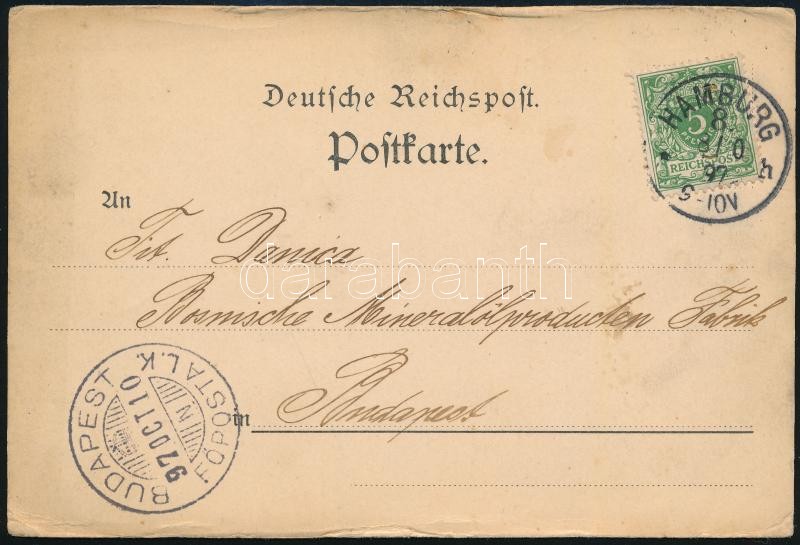 Deutsche Reichspost.
Postkarte.
5
REICHSPOST
HAMBURG
8
8/10
97
9-10V
* h
An
Tit. Danica
darabanth
Bosnische Mineralölproducten Fabrik
in Budapest
BUDAPEST
FŐPOSTA L.K.
97 OCT 10
N